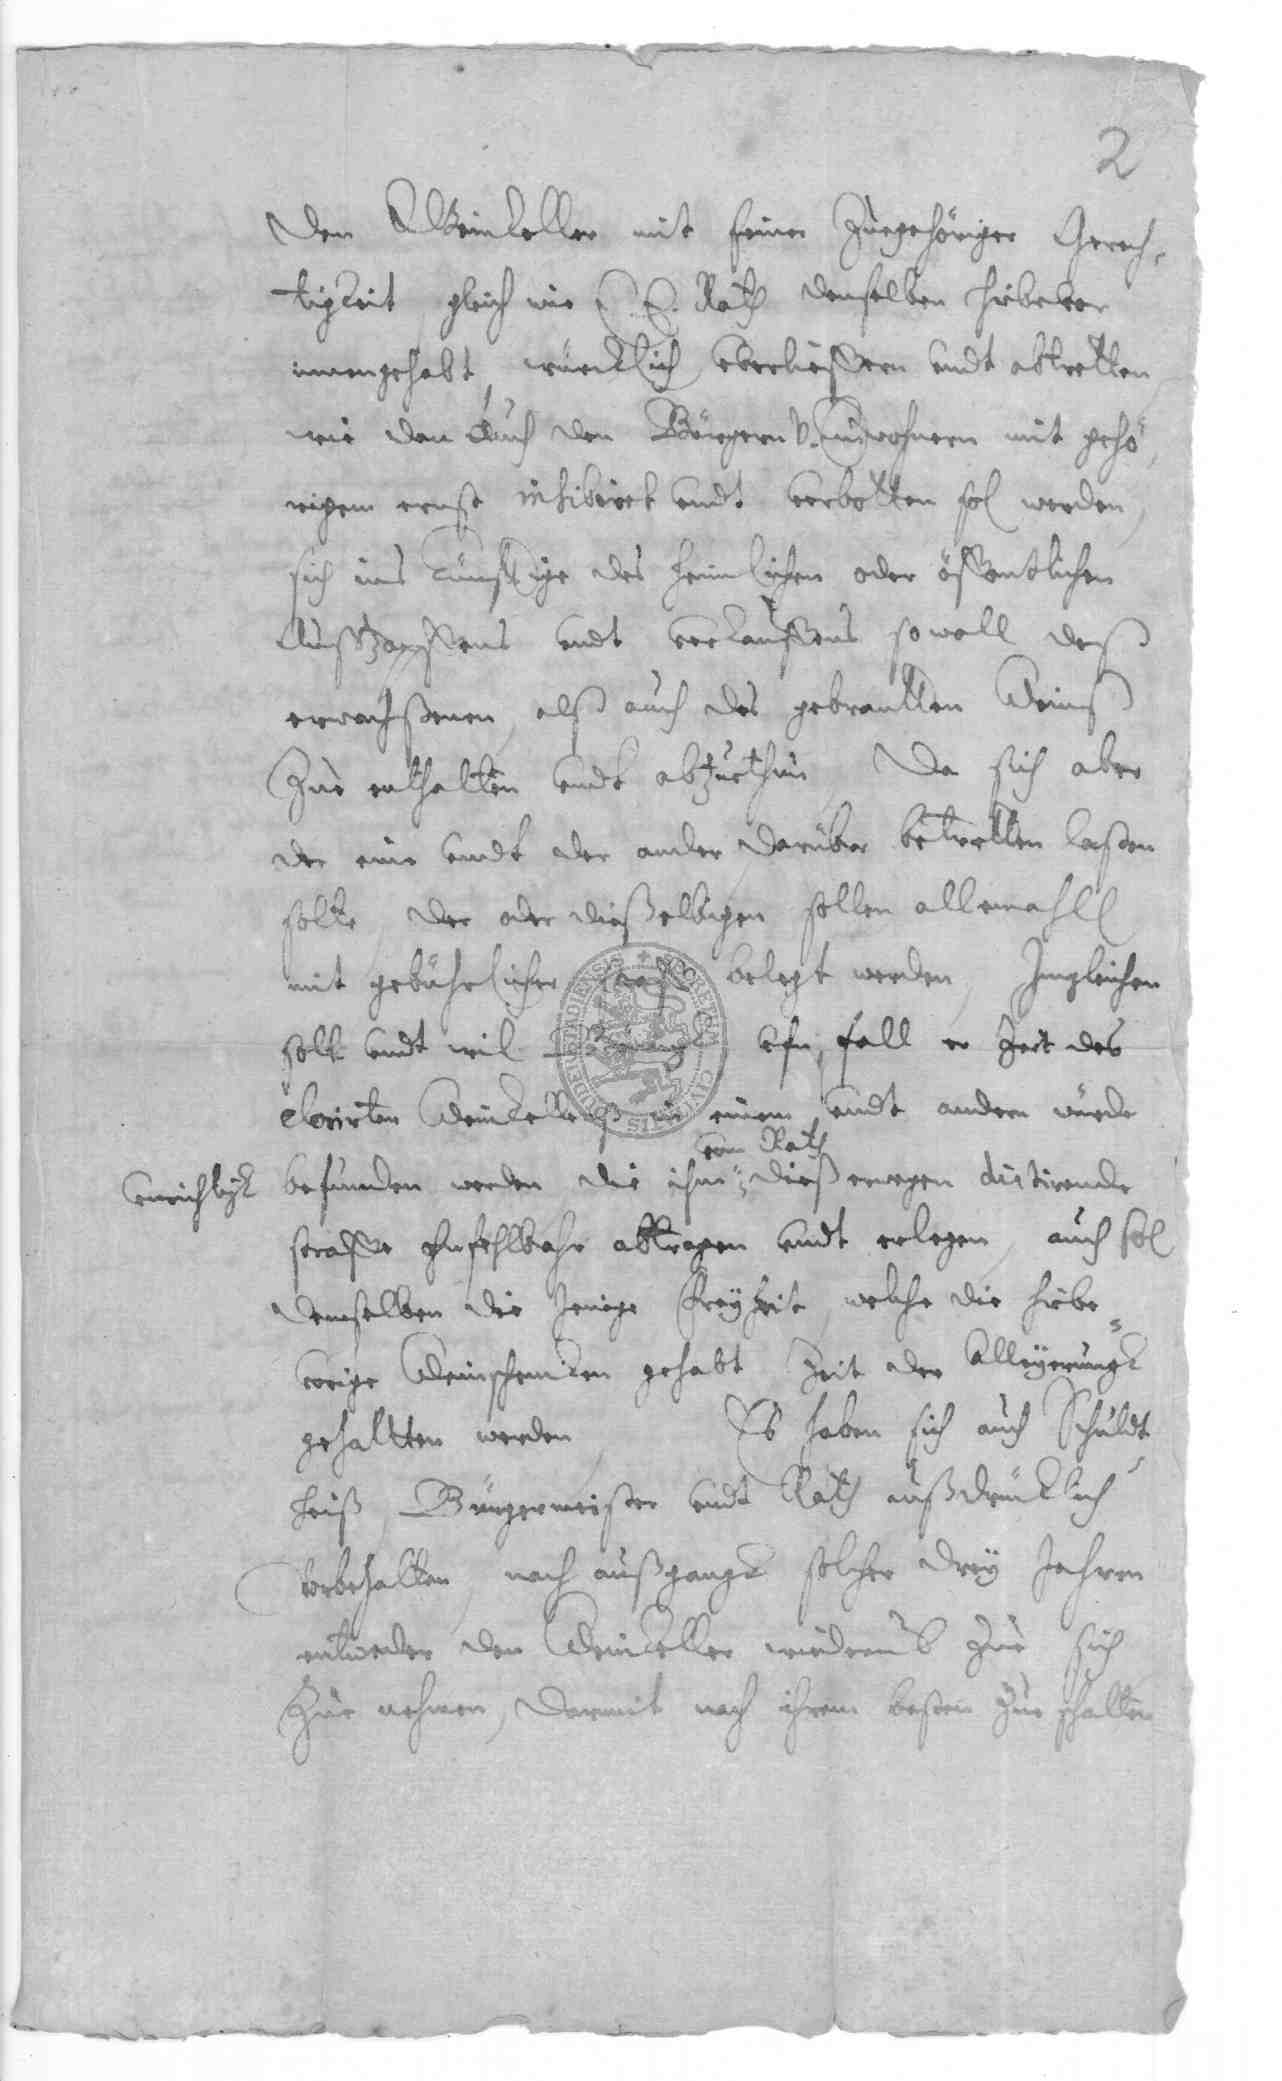 2
den Weinkeller mit seiner Zuegehöriger Gerech-
tigkeit, gleich wie E. E. Rath denselben hiebevor
innengehabt, würcklich überliessern undt abtretten
wie dan auch den Bürgern v. Einwohnern mit gehö-
rigem ernst inhibirt undt verbotten sol werden,
sich ins künfftige des heimlichen oder öffentlichen
Außzapffens undt verkauffens sowoll deß
erwachßenen, alß auch des gebrantten Weinß
Zue enthalten undt abzuethun, Da sich aber
der eine undt der ander darüber betretten laßen
solte, der oder dießelbigen sollen allemahll
mit gebührlicher belegt werden, Imgleichen
solt undt wil fall er Zeit des
Weinkellerß in einem undt andern würde
vom Rath
befunden werden, die ihm dießerwegen dictirende
straffe ohnfehlbahr abtragen undt erlegen, auch sol
demselben die Jenige Freyheit, welche die hiebe-
vorige Weinschencken gehabt Zeit der
gehaltten werden, Es haben sich auch Schuldt
heiß, Bürgermeister undt Rath außdrücklich
vorbehalten, nach außgangk solcher drey Jahren
entweder den Weinkeller wiederumb Zue sich
Zue nehmen, darmit nach ihrem besten Zue schalten
SECRETUM CIVITATIS